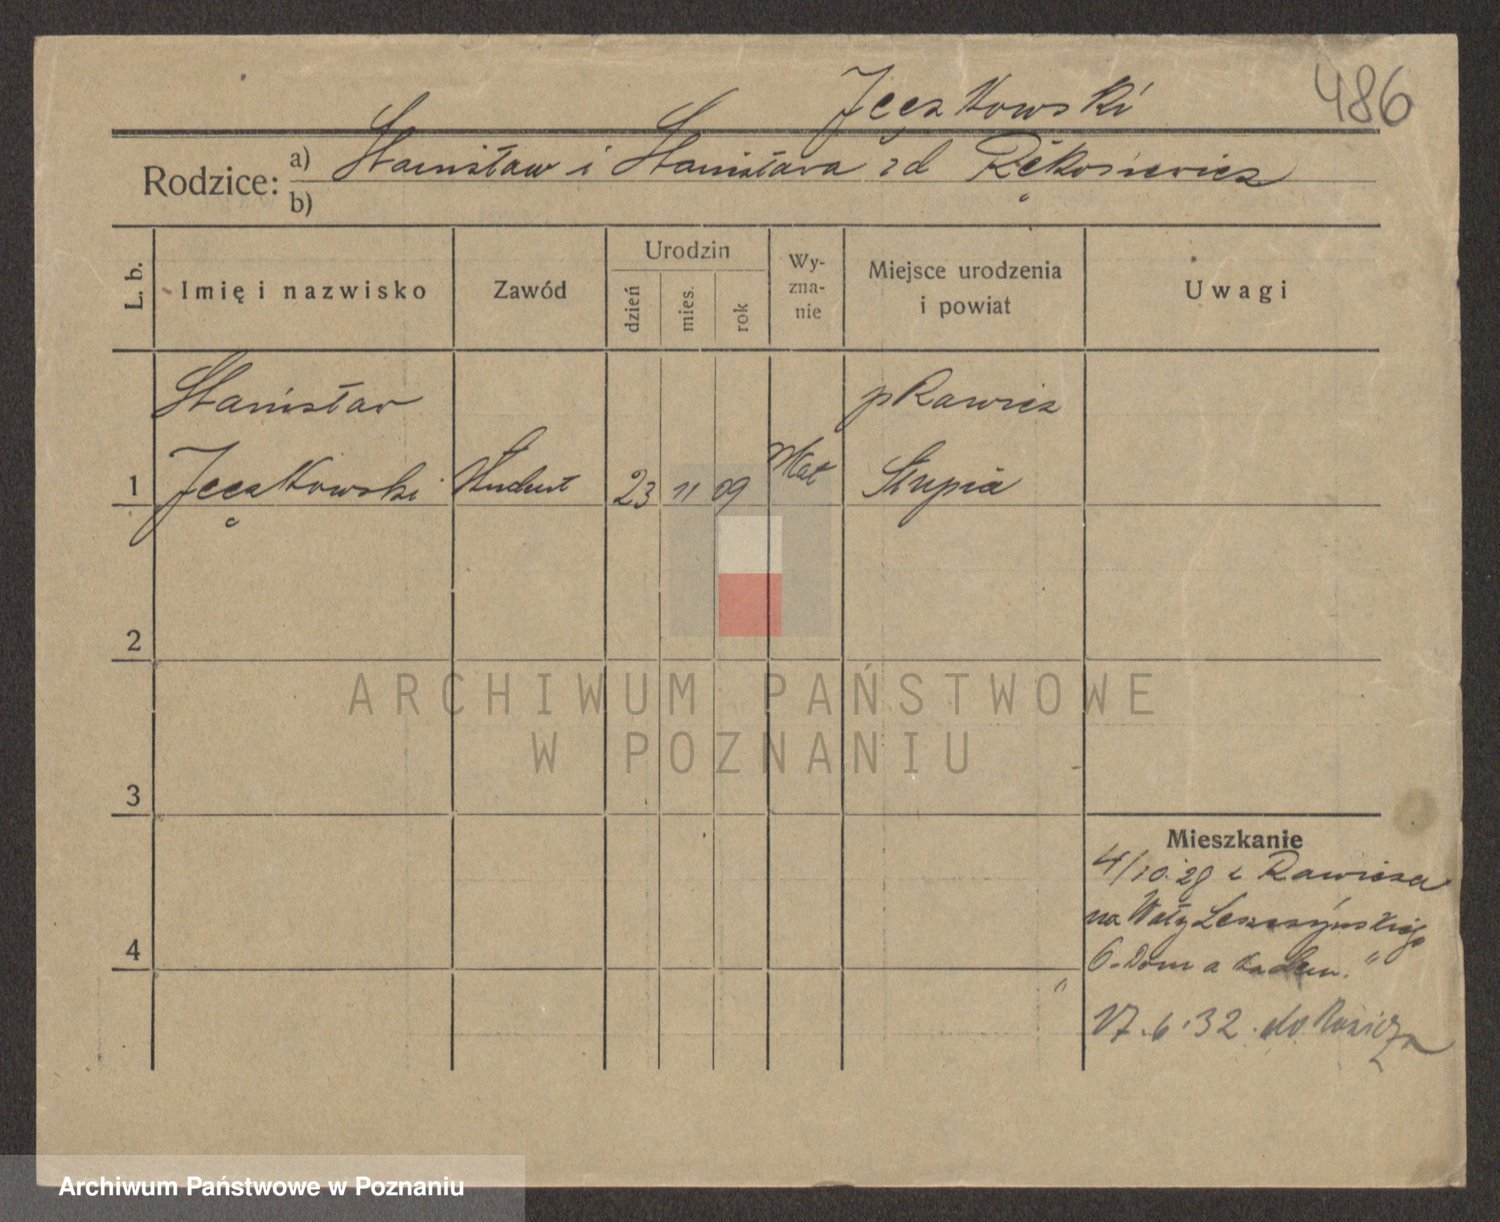 486
Jęczkowski
Rodzice:
a) Stanisław i Stanisława zd Rękosiewicz
b)
L. b.
Imię i nazwisko
Zawód
Urodzin
dzień
mies.
rok
Wy-
zna-
nie
Miejsce urodzenia
i powiat
Uwagi
Stanisław
p Rawicz
1 Jęczkowski Student 23 11 09 Kat Słupia
2
ARCHIWUM PAŃSTWOWE
W POZNANIU
3
Mieszkanie
4/10.28 z Rawicza
na Wały Leszczyńskiego
4
6 - Dom akadem. "
17.6.32. do
Archiwum Państwowe w Poznaniu